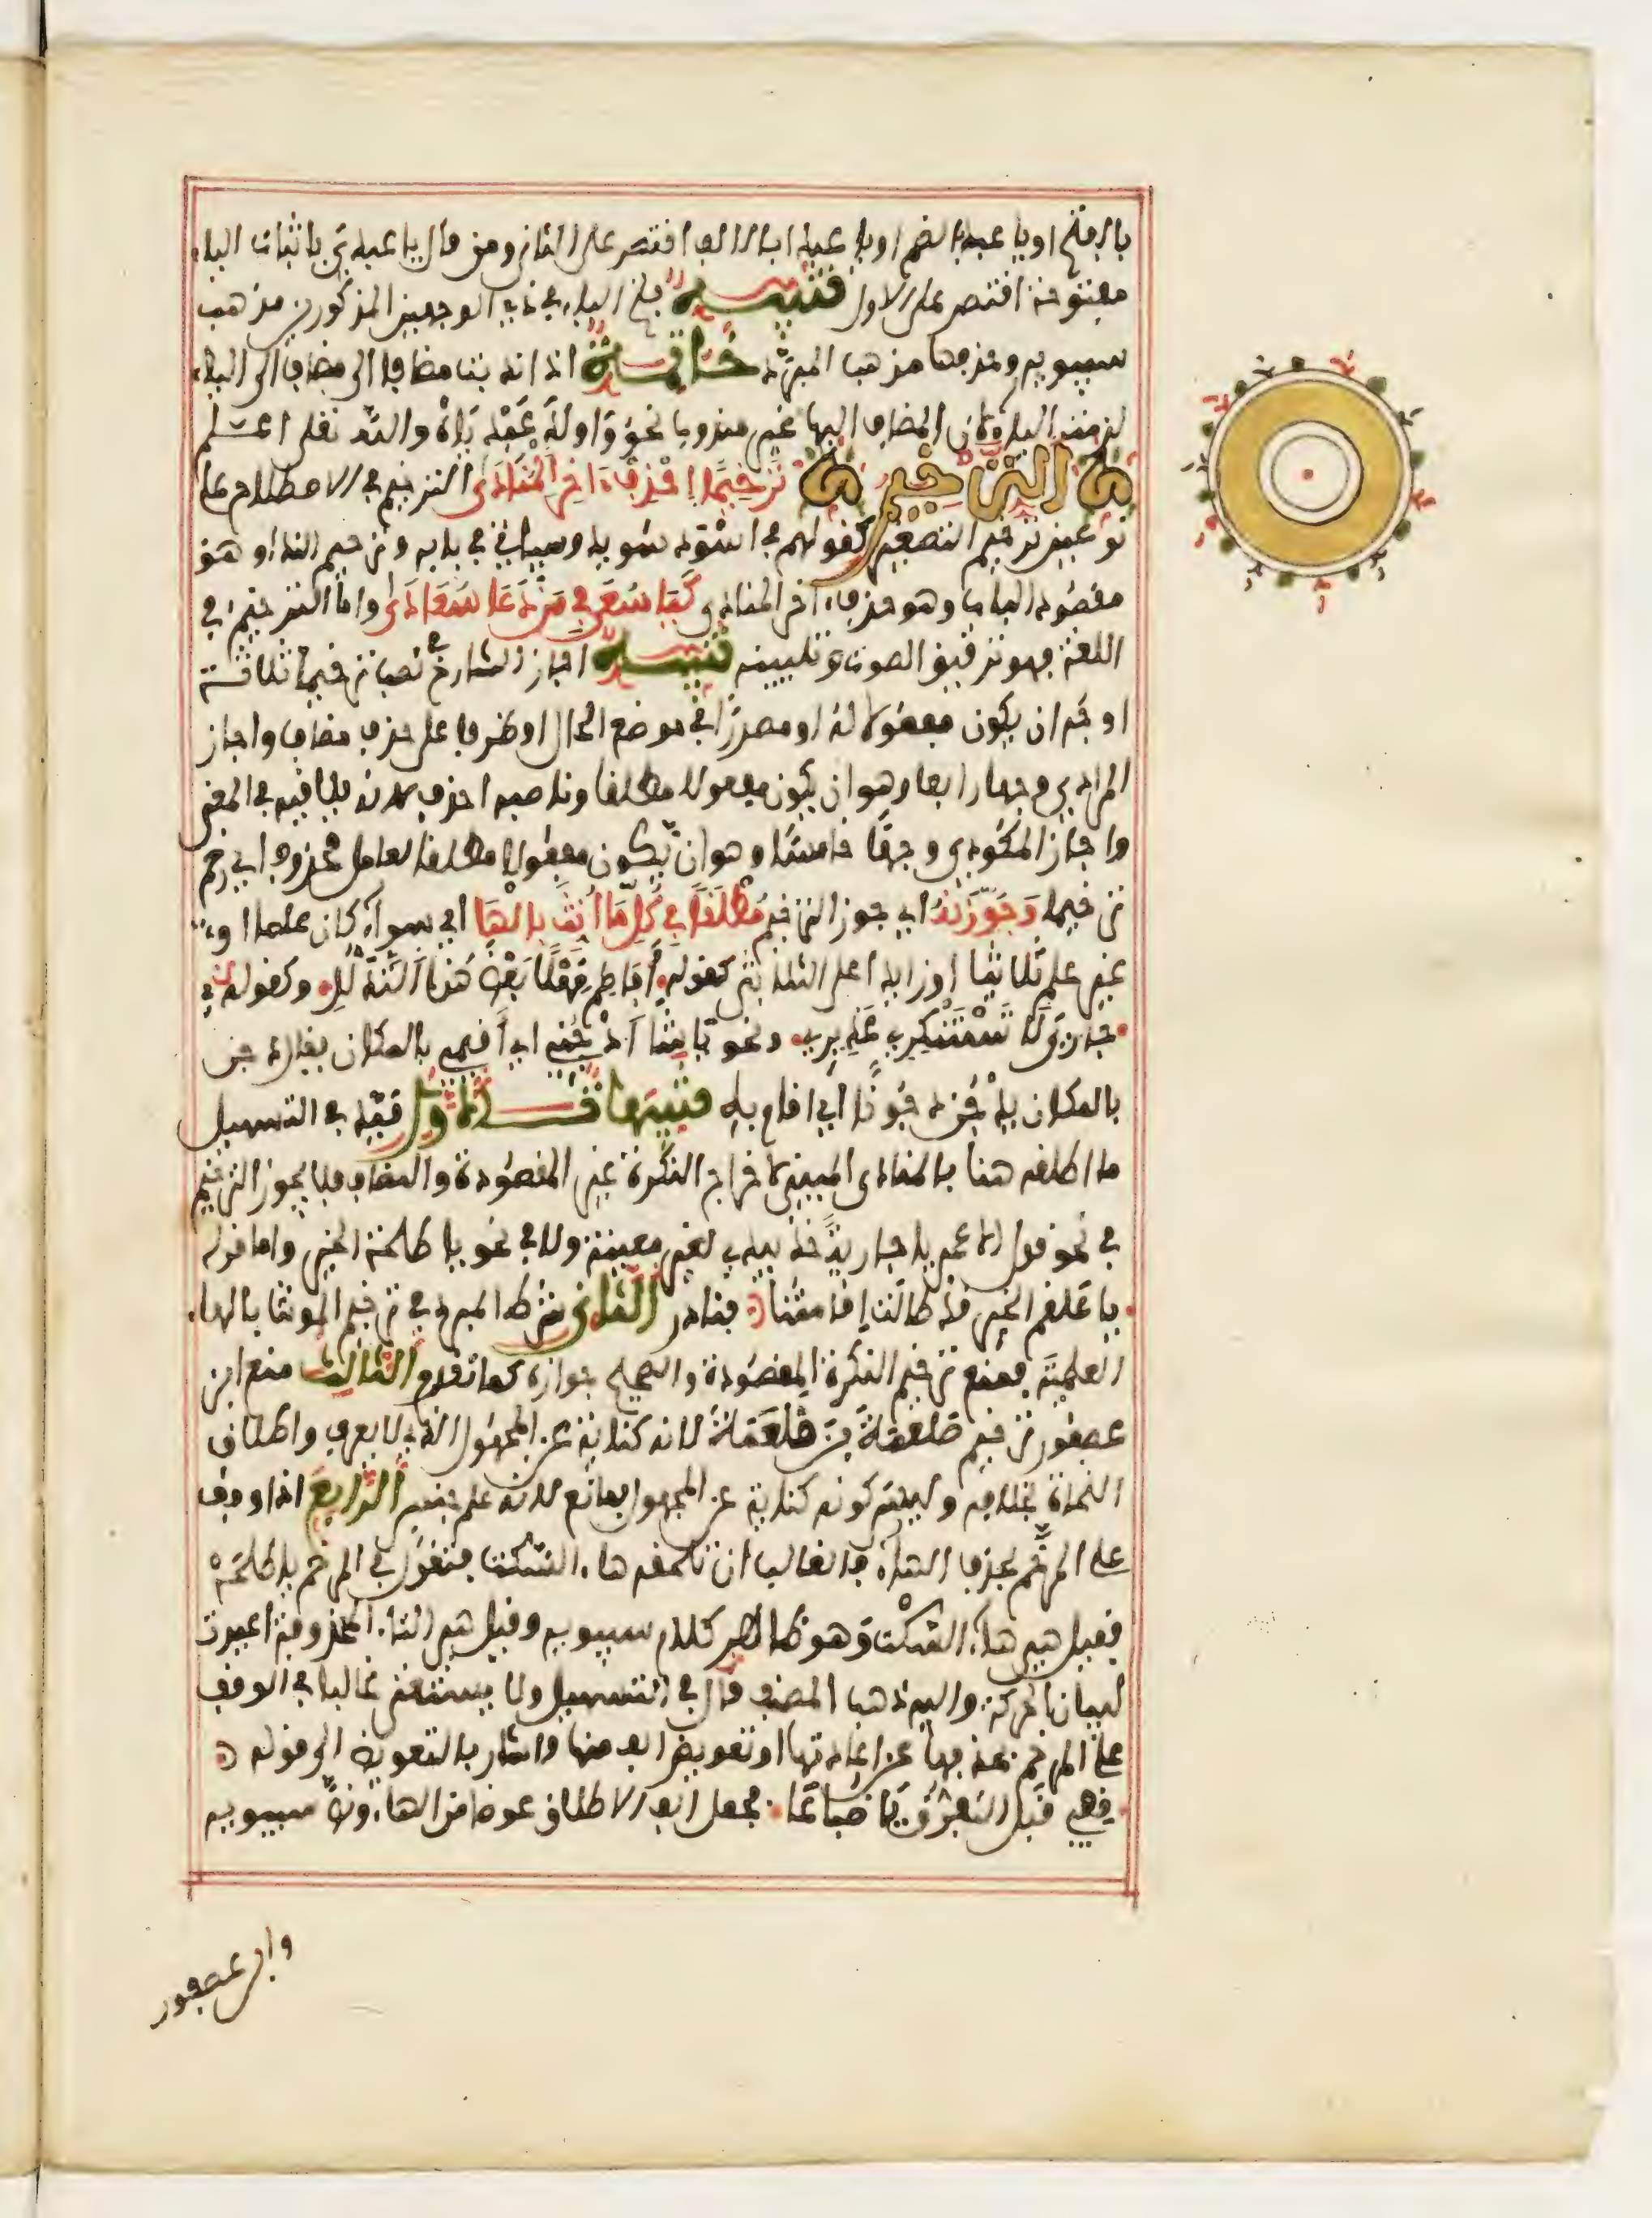 بالفتح او يا عبد بالضم او يا عبدا بالالف اقتصر على الثاني ومن قال يا عبدي باثبات الياء
مفتوحة اقتصر على الاول تنبيه فتح الياء في ذي الوجهين المذكورين مذهب
سيبويه وحذفها مذهب المبرد خاتمة اذا ندبت مضافا الى مضاف الى الياء
لزمت الياء لان المضاف اليها غير مندوب نحو وَاولدَ عَبْدِ يَاهْ والله تعلى اعلم
الترخيم تَرْخِيمًا اِحْذِفْ ءَاخِرَ الْمُنَادَى الترخيم في الاصطلاح على
نوعين ترخيم التصغير كقولهم في اسْوَد سُويد وسياتي في بابه وترخيم النداء وهو
مقصود الباب وهو حذف ءاخر المنادى كَيَا سُعَا فِي مَنْ دَعَا سُعَادَى واما الترخيم في
اللغة فهو ترقيق الصوت وتليينه تنبيه اجاز الشارح في نصب ترخيما ثلاثة
اوجه ان يكون مفعولا له او مصدرًا في موضع الحال او ظرفا على حذف مضاف واجاز
المرادي وجها رابعا وهو ان يكون مفعولا مطلقا وناصبه احذف لانه يلاقيه في المعنى
واجاز المكودي وجهًا خامسًا وهو ان يكون مفعولا مطلقا لعامل محذوف اي رخم
ترخيما وَجَوِّزَنْهُ اي جوز الترخيم مُطْلَقًا فِي كُلِّ مَا اُنِّثَ بِالْهَا اي سواء كان علما او
غير علم ثلاثيا او زايدا على الثلاثي كقوله اَفَاطِمَ مَهْلًا بَعْضَ هَذَا التَّدَلُّلِ وكقوله
جَارِيَ لَا تَسْتَنْكِرِي عَذِيرِي ونحو يَا شَا اُدْجُنِي اي اقيمي بالمكان يقال دجن
بالمكان يَدْجُن دجُونًا اي اقام به تنبيهات الاول قيد في التسهيل
ما اطلقه هنا بالمنادى المبني لاخراج النكرة غير المقصودة والمضاف فلا يجوز الترخيم
في نحو قول الاعمى يا جارية خذ بيدي لغير معينة ولا في نحو يا طلحة الخير واما قوله
يا عَلْقَم الخير قد طالت اِقامتنا فنادر الثاني شرط المبرد في ترخيم المونث بالهاء
العلمية فمنع ترخيم النكرة المقصودة والصحيح جوازه كما تقدم الثالث منع ابن
عصفور ترخيم صَلعمَةَ بن قَلعَمَةَ لانه كناية عن المجهول الذي لا يعرف واطلاق
النحاة بخلافه وليس كونه كناية عن المجهول بمانع لانه علم جنس الرابع اذا وقف
على المرخم بحذف الهاء فالغالب ان تلحقه هاء السكت فتقول في المرخم يا طلحَهْ
فقيل هي هاء السكْت وهو ظاهر كلام سيبويه وقيل هي التاء المحذوفة اعيدت
لبيان الحركة واليه ذهب المصنف قال في التسهيل ولا يستغنى غالبا في الوقف
على المرخم بحذفها عن اعادتها او تعويض الف منها واشار بالتعويض الى قوله
قِفِي قَبْلَ التَّفَرُّقِ يَا ضُبَاعَا فجعل الف الاطلاق عوضا من الهاء ونص سيبويه
وابن عصفور